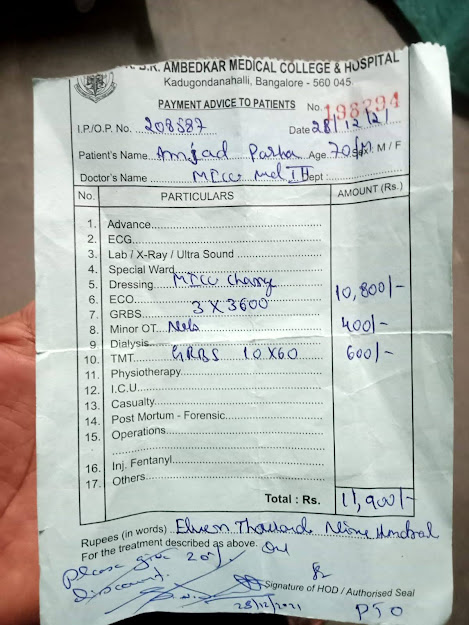 B.R. AMBEDKAR MEDICAL COLLEGE & HOSPITAL
Kadugondanahalli, Bangalore - 560 045.
PAYMENT ADVICE TO PATIENTS No. 198294
I.P./O.P. No. 208587 Date 28/12/21
Patient's Name Amjad Pasha Age 70/M Sex: M / F
Doctor's Name MICU Med III Dept :
No. PARTICULARS AMOUNT (Rs.)
1. Advance
2. ECG
3. Lab / X-Ray / Ultra Sound
4. Special Ward
5. Dressing MICU Charge 10,800/-
6. ECO 3 X 3600
7. GRBS
8. Minor OT Nebs 400/-
9. Dialysis
10. TMT GRBS 10X60 600/-
11. Physiotherapy
12. I.C.U.
13. Casualty
14. Post Mortum - Forensic
15. Operations
16. Inj. Fentanyl
17. Others
Total : Rs. 11,900/-
Rupees (in words) Eleven Thousand Nine Hundred
For the treatment described as above.
Please give 20%
discount.
Signature of HOD / Authorised Seal
28/12/2021 PTO